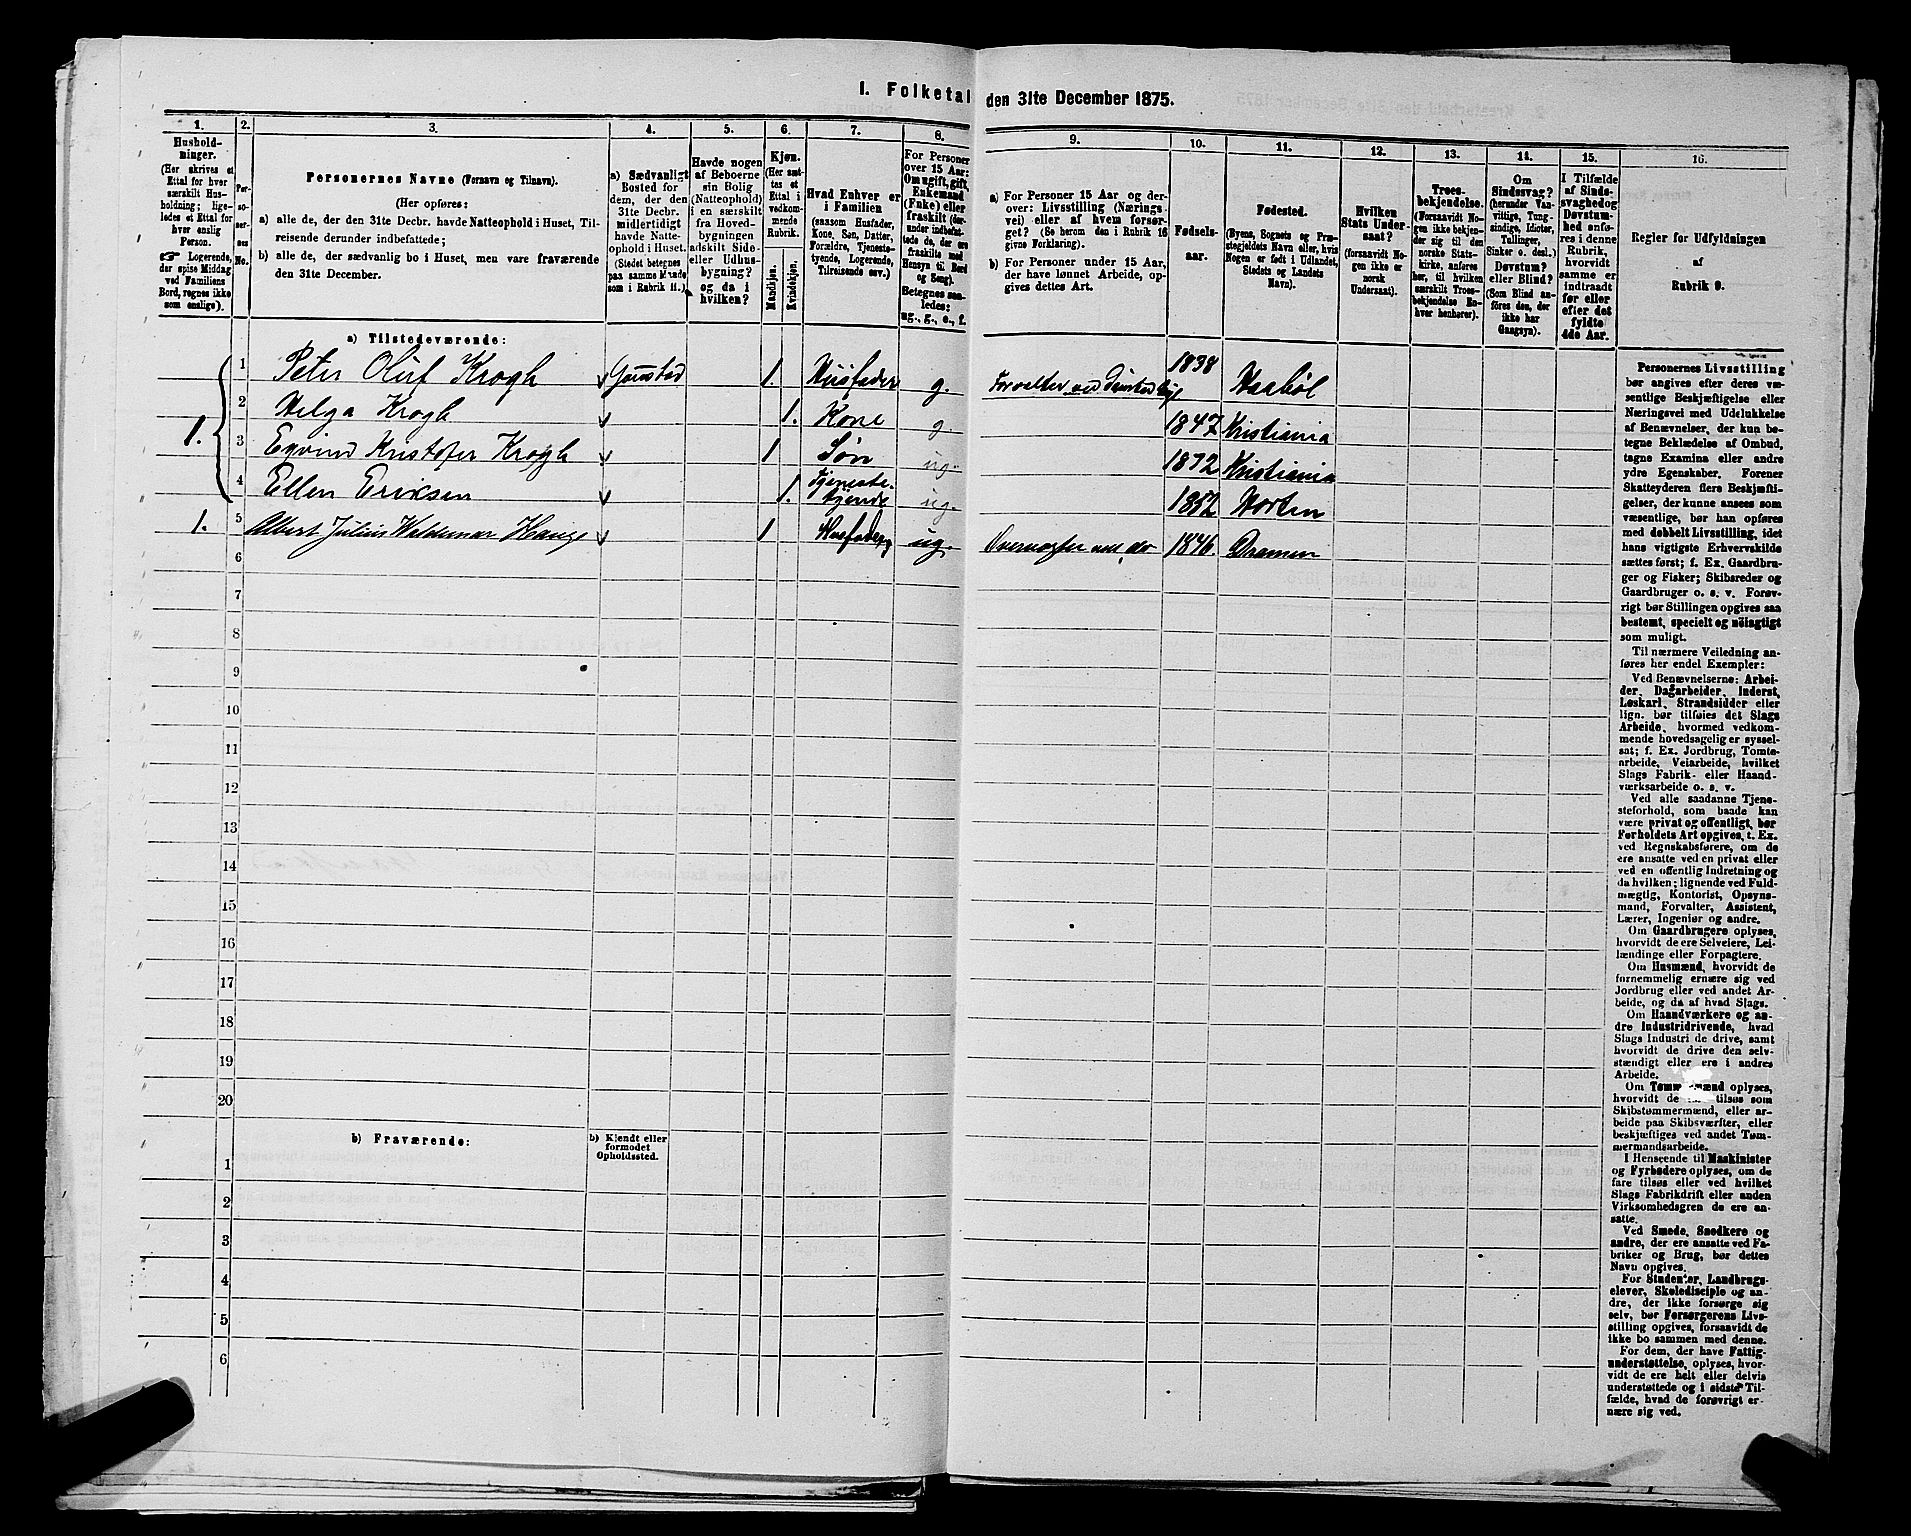 1. Folketal den 31te December 1875.
1. 2. 3. 4. 5. 6. 7. 8. 9. 10. 11. 12. 13. 14. 15. 16.
Husholdninger.
(Her skrives et
Ettal for hver
særskilt Husholdning; ligeledes et Ettal for
hver enslig
Person.
Logerende,
der spise Middag
ved Familiens
Bord, regnes ikke
som enslige).
Personernes No.
Personernes Navne (Fornavn og Tilnavn).
(Her opføres:
a) alle de, der den 31te Decbr. havde Natteophold i Huset, Tilreisende derunder indbefattede;
b) alle de, der sædvanlig bo i Huset, men vare fraværende
den 31te December.
a) Sædvanligt
Bosted for
dem, der den
31te Decbr.
midlertidigt
havde Natteophold i Huset.
(Stedet betegnes
paa samme Maade
som i Rubrik 11.)
Havde nogen
af Beboerne
sin Bolig
(Natteophold)
i en særskilt
fra Hovedbygningen
adskilt Side-
eller Udhusbygning?
og da i
hvilken?
Kjøn.
(Her sættes et
Ettal i
vedkommende
Rubrik.
Mandkjøn.
Kvindekjøn.
Hvad Enhver er
i Familien
(saasom Husfader,
Kone, Søn, Datter,
Forældre, Tjenestetyende, Logerende,
Tilreisende osv.)
For Personer
over 15 Aar:
Om ugift, gift,
Enkemand
(Enke) eller
fraskilt (derunder indbefattede de, der ere
fraskilte med
Hensyn til Bord
og Seng).
Betegnes saaledes:
ug., g., e., f.
a) For Personer 15 Aar og derover: Livsstilling (Næringsvei) eller af hvem forsørget? (Se herom den i Rubrik 16
givne Forklaring).
b) For Personer under 15 Aar,
der have lønnet Arbeide, opgives dettes Art.
Fødselsaar.
Fødested.
(Byens, Sognets og Præstegjeldets Navn eller, hvis
Nogen er født i Udlandet,
Stedets og Landets
Navn).
Hvilken
Stats Undersaat?
(forsaavidt Nogen ikke er
norsk
Undersaat).
Troesbekjendelse.
(Forsaavidt Nogen ikke bekjender sig til den
norske Statskirke, anføres
her, til hvilken
særskilt Troesbekjendelse Enhver henhører).
Om
Sindssvag?
(herunder Vanvittige, Tungsindige, Idioter,
Tullinger,
Sinker o. desl.)
Døvstum?
eller Blind?
(Som Blind anføres den, der
ikke har
Gangsyn).
I Tilfælde
af Sindssvaghed og
Døvstumhed anføres i denne
Rubrik,
hvorvidt
samme er
indtraadt
før eller
efter det
fyldte
4de Aar.
Regler for Udfyldningen
af
Rubrik 9.
a) Tilstedeværende:
1. 1 Peter Oluf Krogh Gaustad 1. Husfader g. Forvalter ved Gaustad 1838
2 Helga Krogh 1. Kone g. 1847 Kristiania
3 Eyvind Kristofer Krogh 1 Søn ug. 1872 Kristiania
4 Ellen Eriksen 1. Tjenestetyende ug. 1852 Horten
1. 5 Albert Julius Waldemar Hauge 1 Husfader ug. 1846. Dramen
6
7
8
9
10
11
12
13
14
15
16
17
18
19
20
b) Fraværende:
b) Kjendt eller
formodet
Opholdssted.
1
2
3
4
5
6
Personernes Livsstilling
bør angives efter deres væsentlige Beskjæftigelse eller
Næringsvei med Udelukkelse
af Benævnelser, der kun betegne Beklædelse af Ombud,
tagne Examina eller andre
ydre Egenskaber. Forener
Skatteyderen flere Beskjæftigelser, der kunne ansees som
væsentlige, bør han opføres
med dobbelt Livsstilling, idet
hans vigtigste Erhvervskilde
sættes først; f. Ex. Gaardbruger og Fisker; Skibsreder og
Gaardbruger o. s. v. Forøvrigt bør Stillingen opgives saa
bestemt, specielt og nøiagtigt
som muligt.
Til nærmere Veiledning anføres her endel Exempler:
Ved Benævnelserne: Arbeider, Dagarbeider, Inderst,
Løskarl, Strandsidder eller
lign. bør tilføies det Slags
Arbeide, hvormed vedkommende hovedsagelig er sysselsat; f. Ex. Jordbrug, Tomtearbeide, Veiarbeide, hvilket
Slags Fabrik- eller Haandværksarbeide o. s. v.
Ved alle saadanne Tjenesteforhold, som baade kan
være privat og offentligt, bør
Forholdets Art opgives, t. Ex.
ved Regnskabsførere, om de
ere ansatte ved en privat eller
ved en offentlig Indretning og
da hvilken; lignende ved Fuldmægtig, Kontorist, Opsynsmand, Forvalter, Assistent,
Lærer, Ingeniør og andre.
Om Gaardbrugere oplyses,
hvorvidt de ere Selveiere, Leilændinge eller Forpagtere.
Om Husmænd, hvorvidt de
fornemmelig ernære sig ved
Jordbrug eller ved andet Arbeide, og da af hvad Slags.
Om Haandværkere og andre Industridrivende, hvad
Slags Industri de drive, samt
hvorvidt de drive den selvstændigt eller ere i andres
Arbeide.
Om oplyses,
hvorvidt de som
Skibstømmermænd, eller arbeide paa Skibsværfter, eller
beskjæftiges ved andet Tømmermandsarbeide.
I Henseende til Maskinister
og Fyrbødere oplyses, om de
fare tilsøs eller ved hvilket
Slags Fabrikdrift eller anden
Virksomhedsgren de ere ansatte.
Ved Smede, Snedkere og
andre, der ere ansatte ved Fabriker og Brug, bør dettes
Navn opgives.
For Studenter, Landbrugselever, Skoledisciple og andre, der ikke forsørge sig
selv, bør Forsørgerens Livsstilling opgives, forsaavidt de
ikke bo sammen med denne.
For dem, der have Fattigunderstøttelse, oplyses, hvorvidt de ere helt eller delvis
understøttede og i sidste Tilfælde, hvad de forøvrigt ernære sig ved.